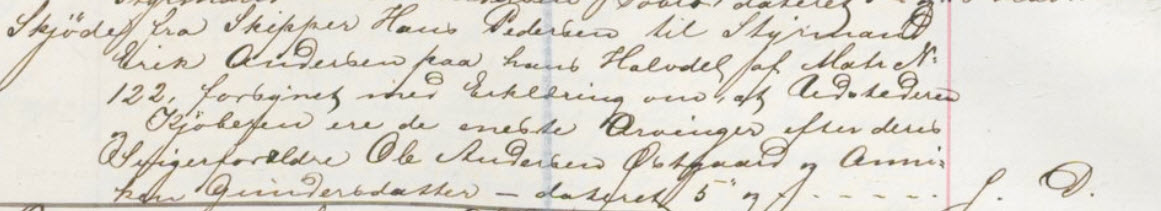 dateret
Skjöde fra Skipper Hans Pedersen til Styrmand
Erik Andersen paa hans Halvdel af Matr N.
122, forsynet med Erklæring om, at Udstederen
og Kjöberen ere de eneste Arvinger efter deres
Svigerforældre Ole Andersen Østgaard og Anni-
ken Gundersdatter — dateret 5" og f - - - - - . S. D.